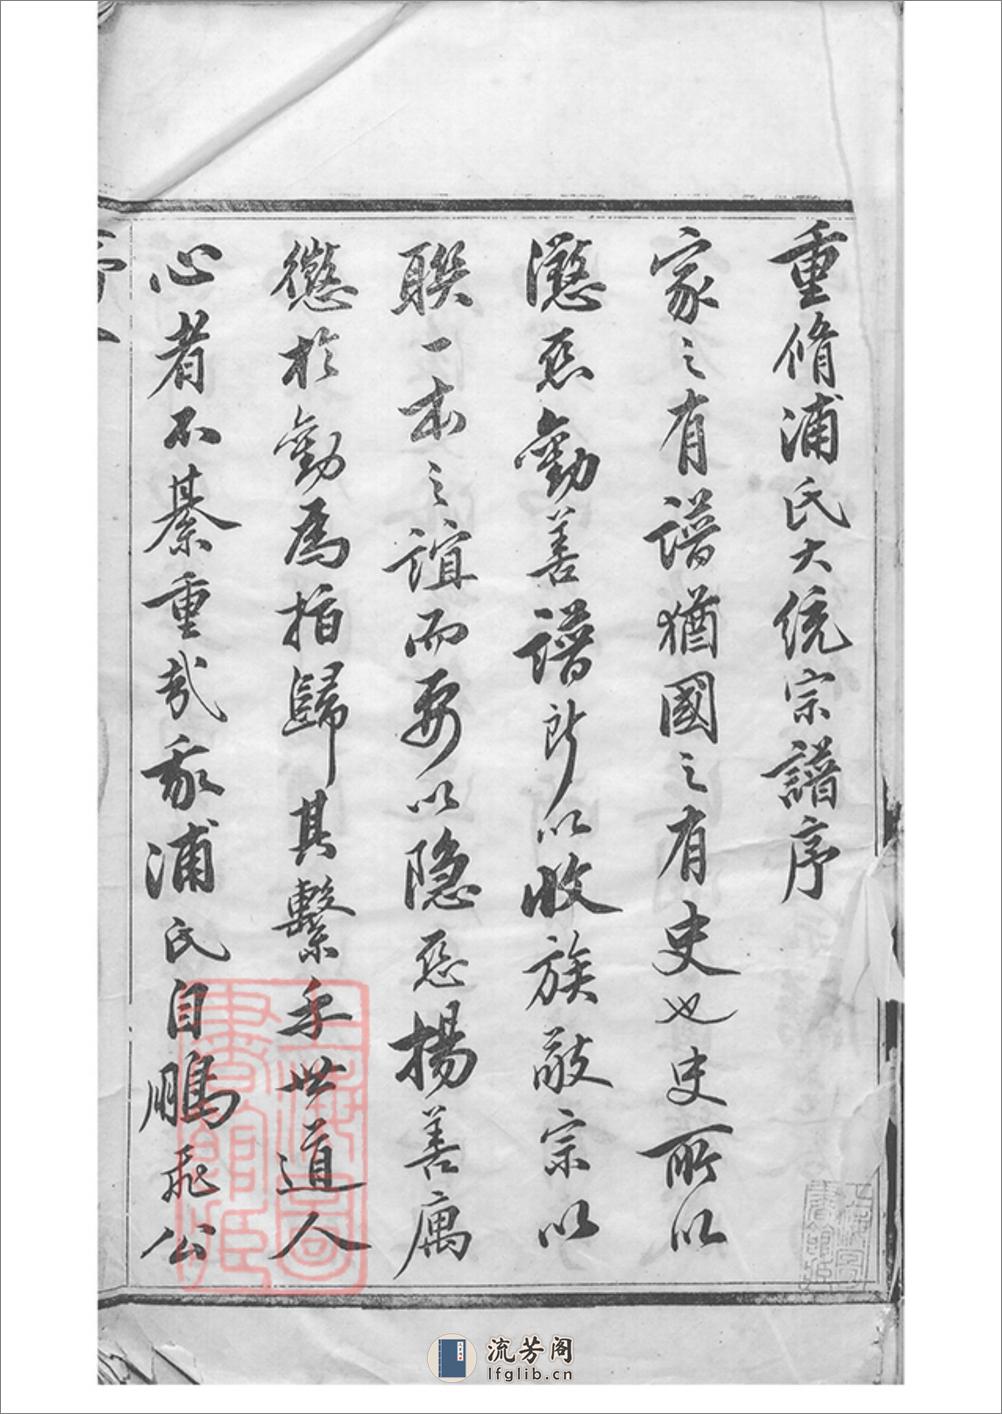 重脩浦氏大統宗譜序
家之有譜猶國之有史也史所以
懲惡勸善譜所以收族敬宗以
聯一本之誼而要以隐惡揚善寓
懲於勸為指歸其繫乎世道人
心者不綦重哉我浦氏自鵬飛公
上海圖
書館藏
流芳阁
lfglib.cn